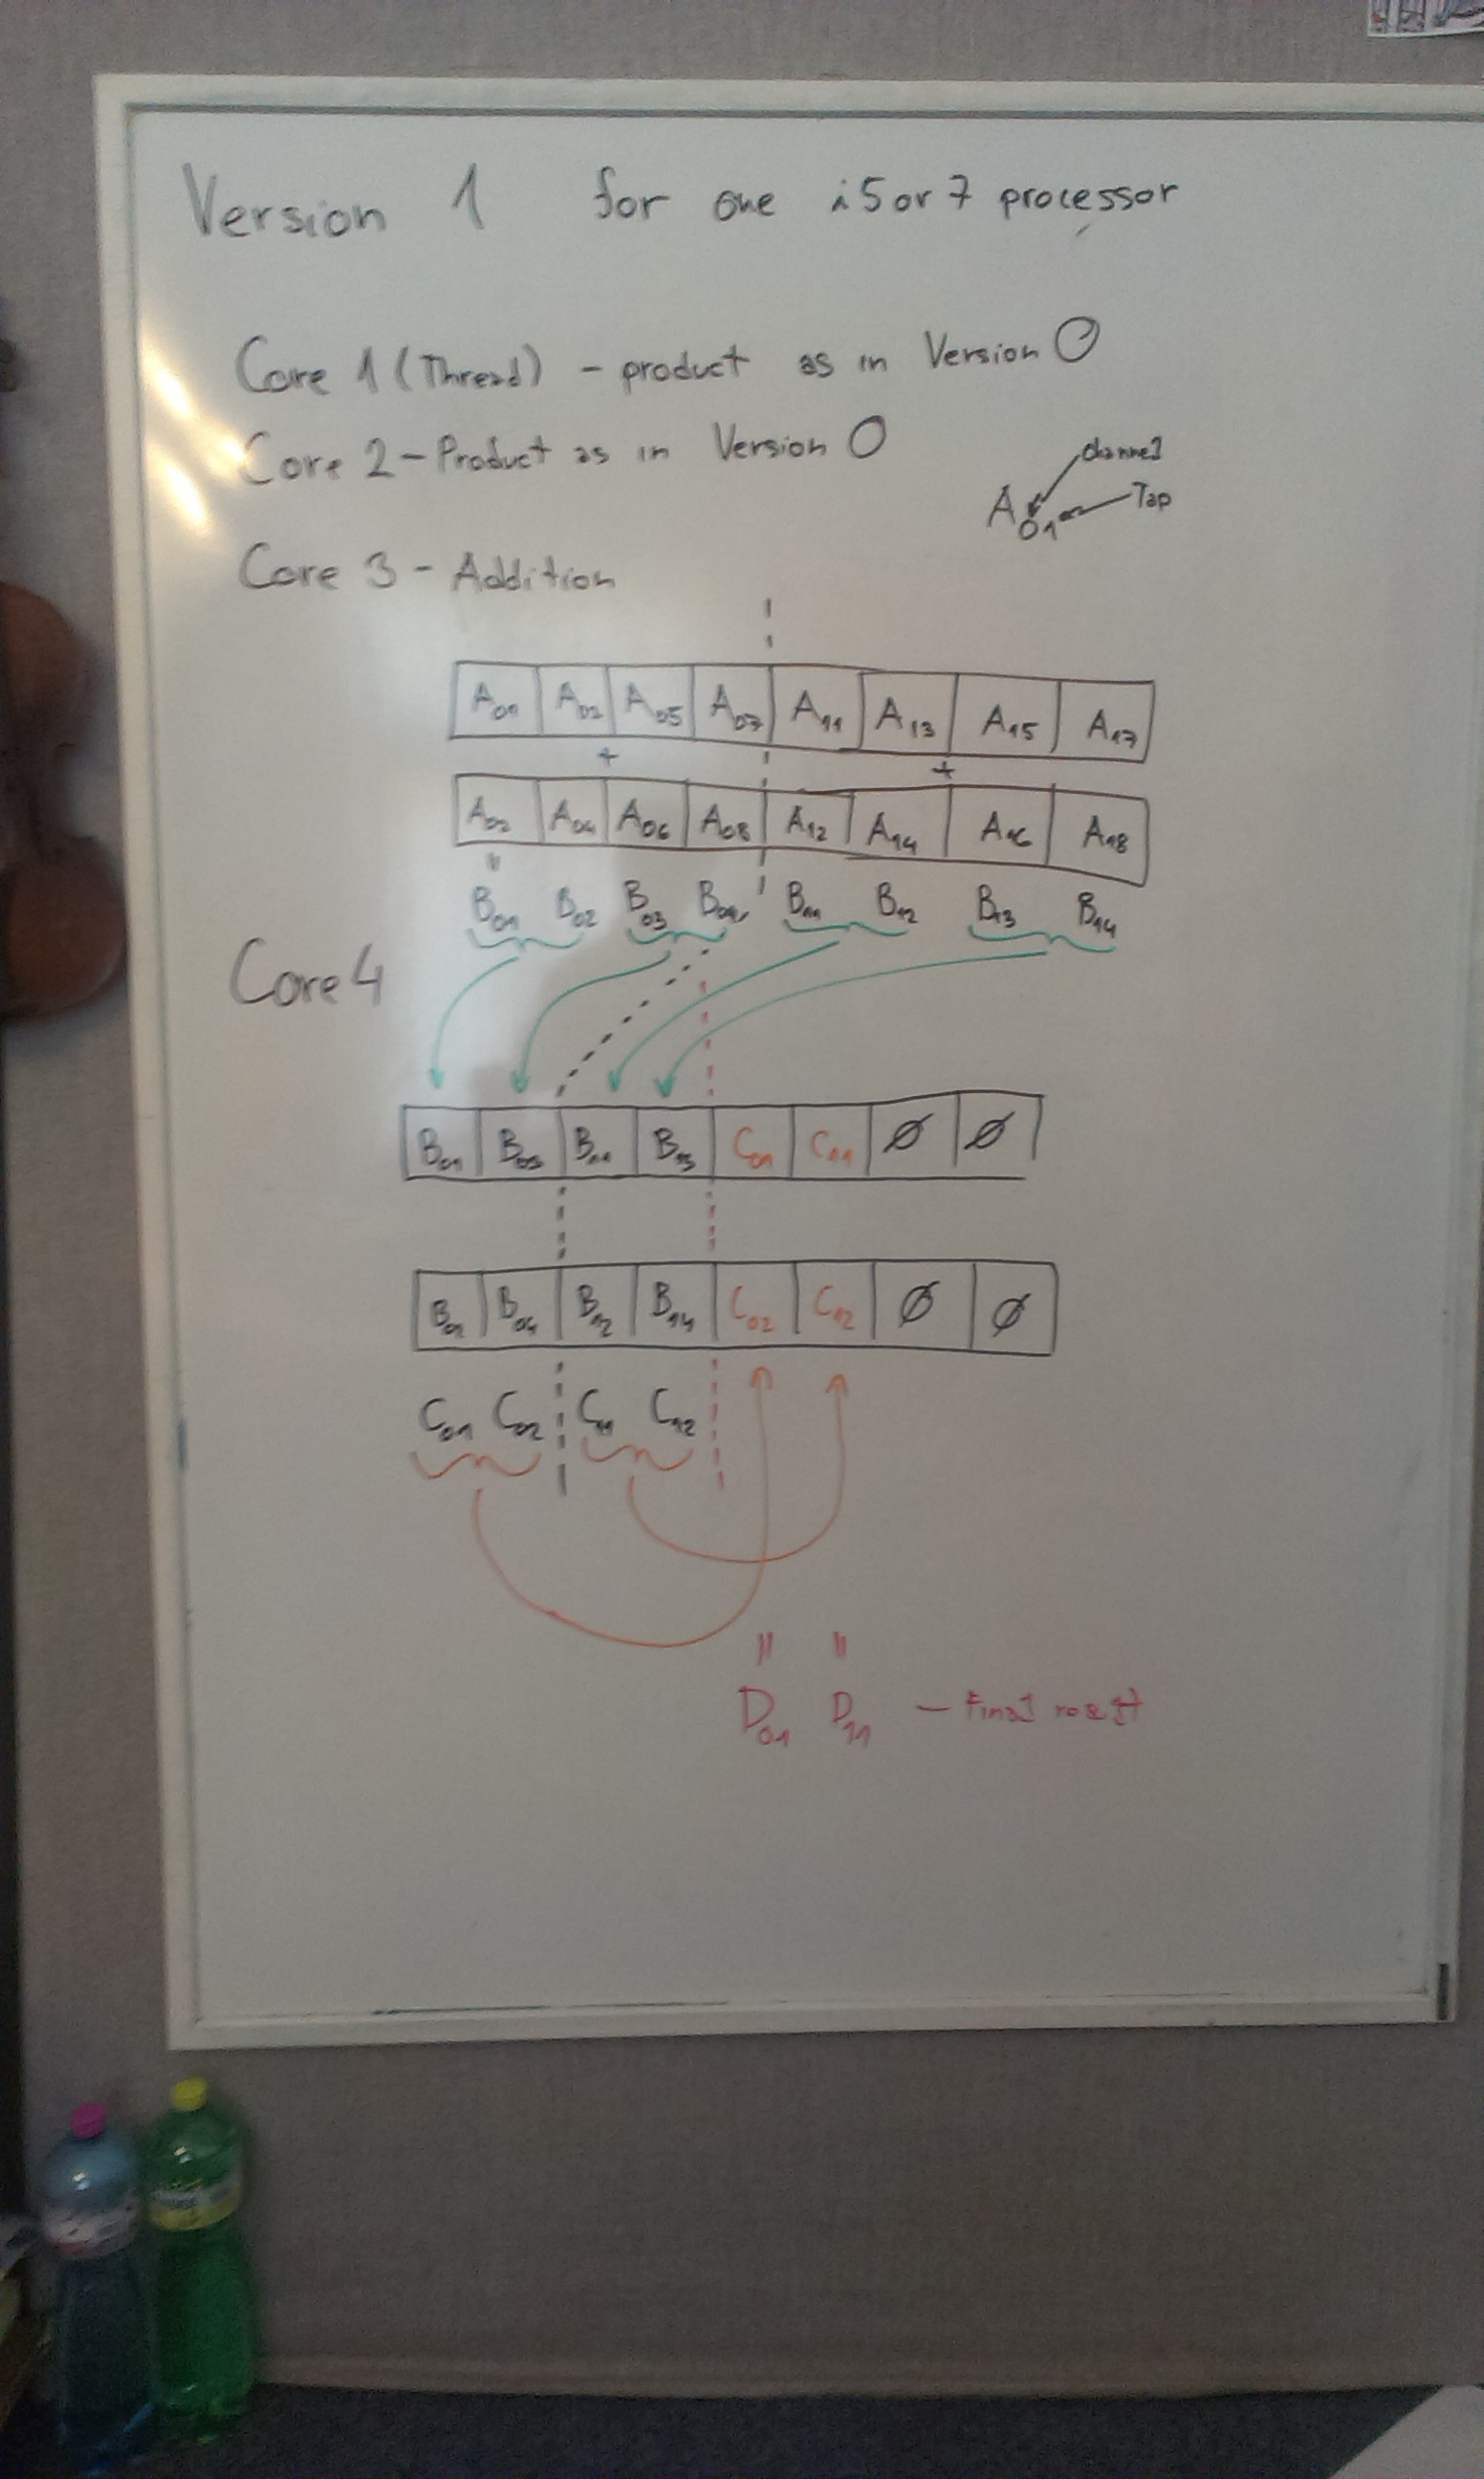 Version 1 for one i5 or 7 processor
Core 1 (Thread) - product as in Version 0
Core 2 - Product as in Version 0
channel
A01 Tap
Core 3 - Addition
A01 A02 A05 A07 A11 A13 A15 A17
+ +
A02 A04 A06 A08 A12 A14 A16 A18
=
B01 B02 B03 B04 B11 B12 B13 B14
Core 4
B01 B03 B11 B13 C01 C11 Ø Ø
B02 B04 B12 B14 C02 C12 Ø Ø
C01 C02 C11 C12
= =
D01 D11 - Final